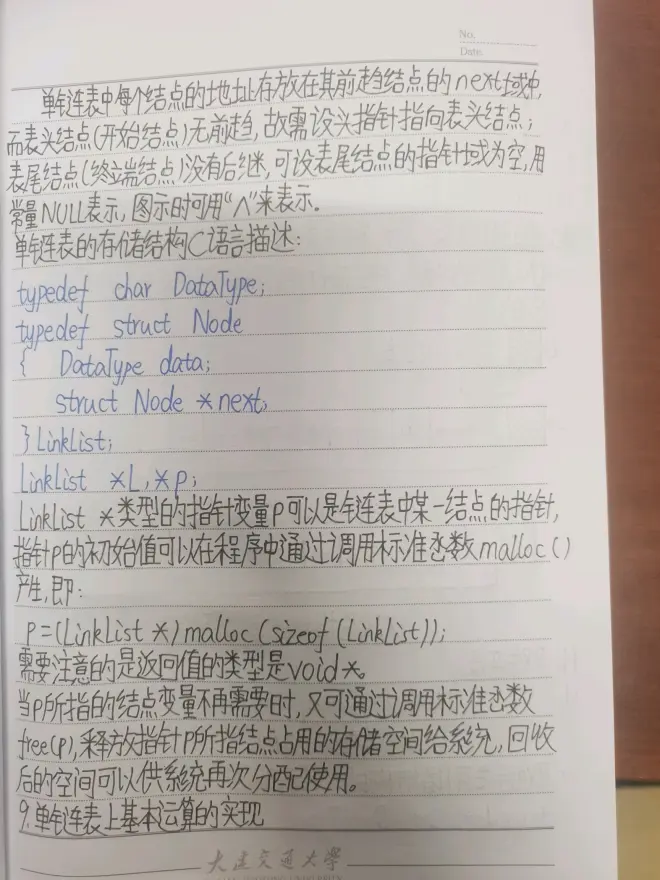 No.
Date.
单链表中每个结点的地址存放在其前趋结点的next域中,
而表头结点(开始结点)无前趋,故需设头指针指向表头结点;
表尾结点(终端结点)没有后继,可设表尾结点的指针域为空,用
常量NULL表示,图示时可用“∧”来表示.
单链表的存储结构C语言描述:
typedef char DataType;
typedef struct Node
{ DataType data;
struct Node *next;
}LinkList;
LinkList *L,*p;
LinkList *类型的指针变量P可以是链表中某一结点的指针,
指针P的初始值可以在程序中通过调用标准函数malloc()
产生,即:
P=(LinkList *)malloc(sizeof(LinkList));
需要注意的是返回值的类型是void*。
当P所指的结点变量不再需要时,又可通过调用标准函数
free(P),释放指针P所指结点占用的存储空间给系统,回收
后的空间可以供系统再次分配使用。
9.单链表上基本运算的实现
大连交通大学